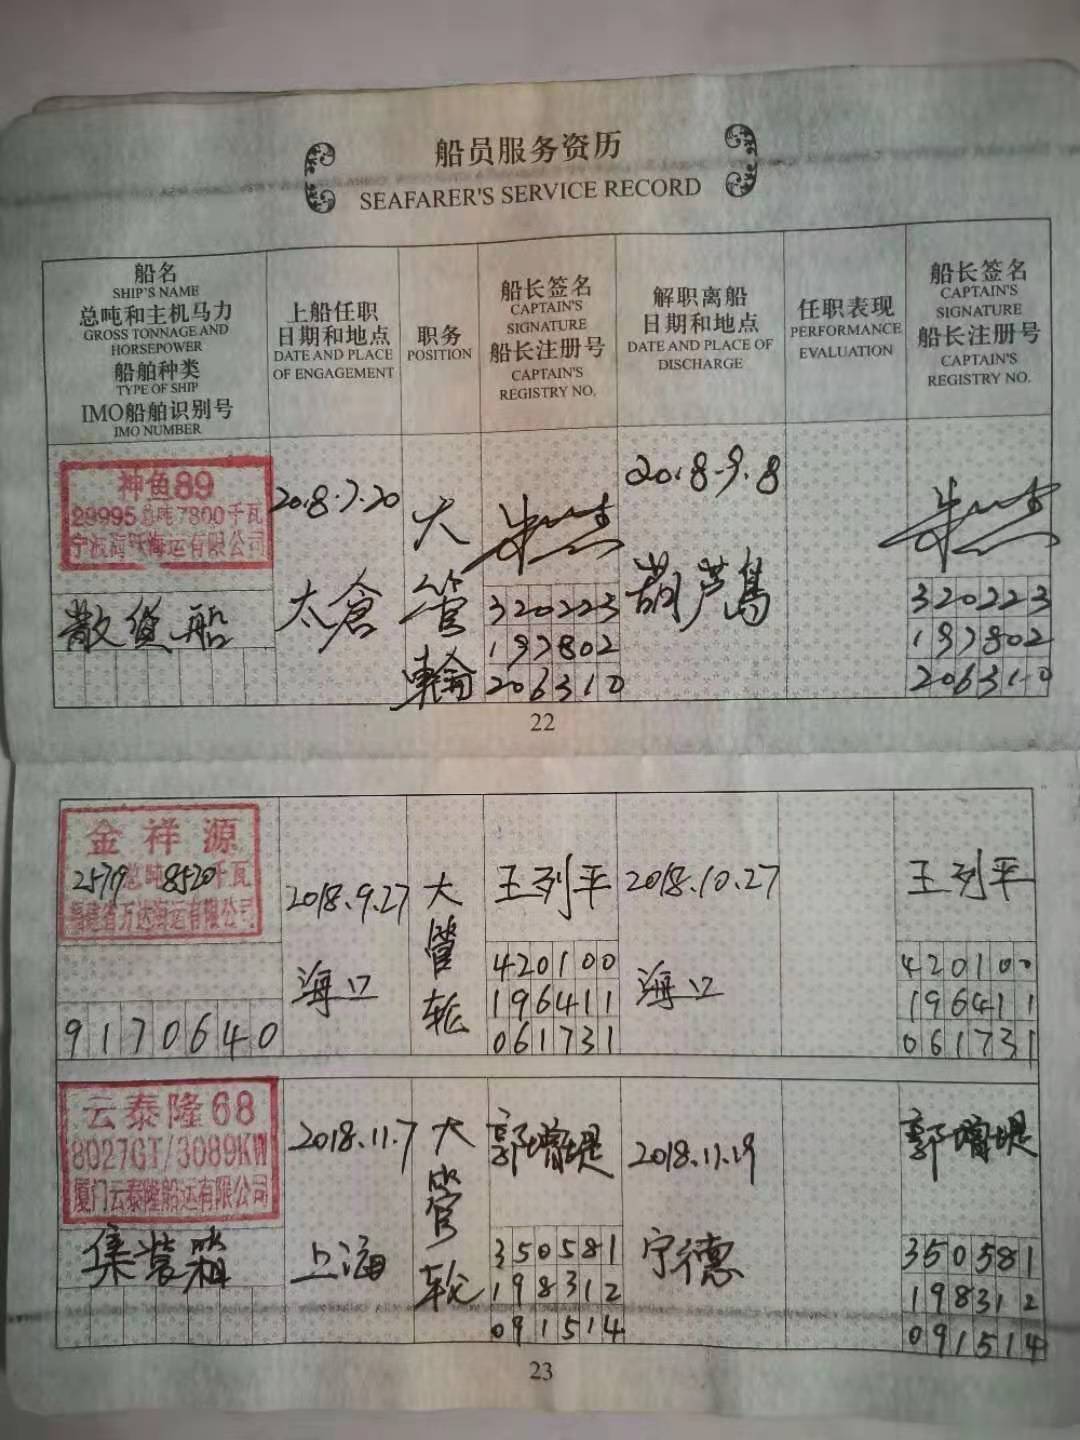 船员服务资历
SEAFARER'S SERVICE RECORD
船名
SHIP'S NAME
总吨和主机马力
GROSS TONNAGE AND
HORSEPOWER
船舶种类
TYPE OF SHIP
IMO船舶识别号
IMO NUMBER
上船任职
日期和地点
DATE AND PLACE
OF ENGAGEMENT
职务
POSITION
船长签名
CAPTAIN'S
SIGNATURE
船长注册号
CAPTAIN'S
REGISTRY NO.
解职离船
日期和地点
DATE AND PLACE OF
DISCHARGE
任职表现
PERFORMANCE
EVALUATION
船长签名
CAPTAIN'S
SIGNATURE
船长注册号
CAPTAIN'S
REGISTRY NO.
神鱼89
29995总吨7800千瓦
宁波 海运有限公司
散货船
2018.7.20
太倉
大
管
輪
320223
197802
206310
2018.9.8
葫芦島
320223
197802
206310
22
金祥源
25719总吨8520千瓦
福建省万达海运有限公司
9170640
2018.9.27
海口
大
管
轮
王列平
420100
196411
061731
2018.10.27
海口
王列平
420100
196411
061731
云泰隆68
8027GT/3089KW
厦门云泰隆船运有限公司
集装箱
2018.11.7
上海
大
管
轮
郭增堤
350581
198312
091514
2018.11.19
宁德
郭增堤
350581
198312
091514
23